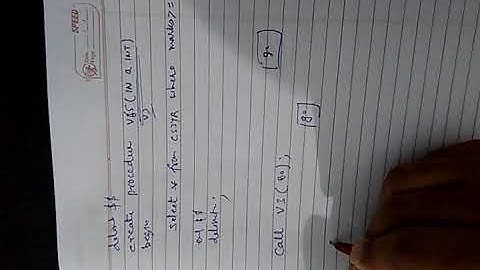 SPEED
delimit $$
create procedure V85 (IN a INT)
V2
begin
select * from CS3YR where marks >=
end $$
delimit ;
call V2(80);
80
90